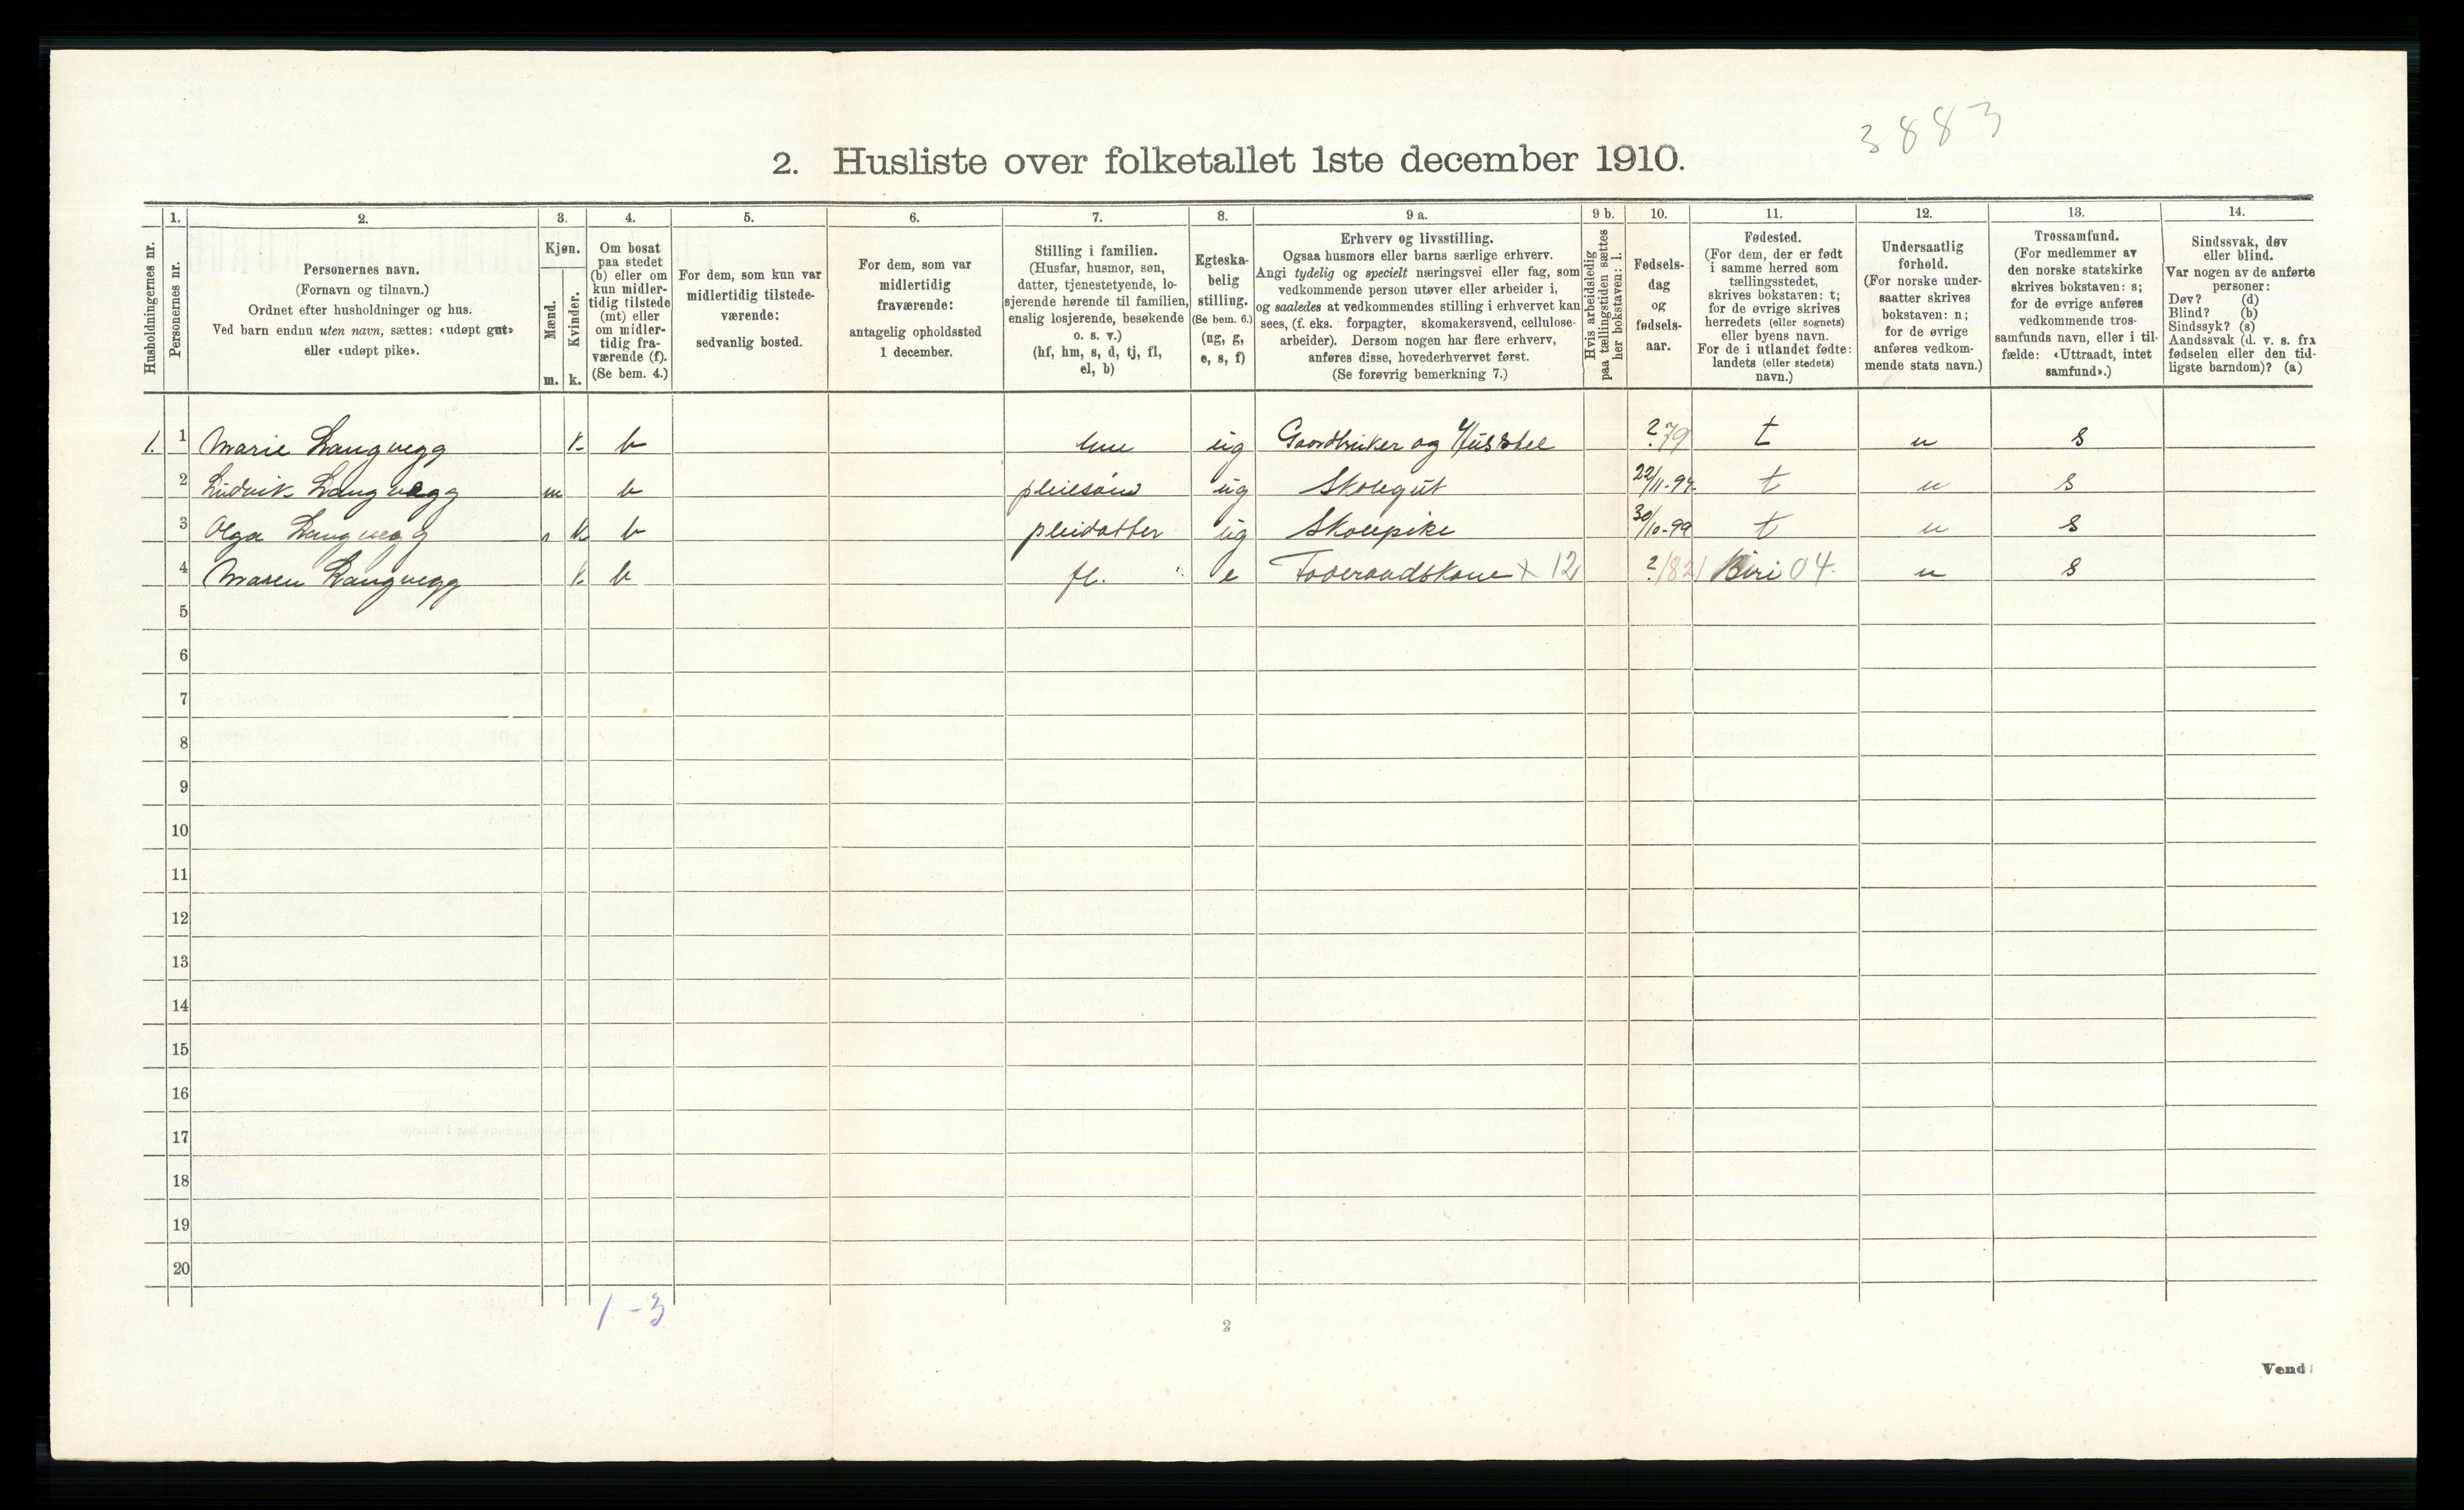 3883
2. Husliste over folketallet 1ste december 1910.
Husholdningernes nr.
1.
Personernes nr.
2.
Personernes navn.
(Fornavn og tilnavn.)
Ordnet efter husholdninger og hus.
Ved barn endnu uten navn, sættes: «udøpt gut»
eller «udøpt pike».
3.
Kjøn.
Mænd.
Kvinder.
m. k.
4.
Om bosat
paa stedet
(b) eller om
kun midler-
tidig tilstede
(mt) eller
om midler-
tidig fra-
værende (f).
(Se bem. 4.)
5.
For dem, som kun var
midlertidig tilstede-
værende:
sedvanlig bosted.
6.
For dem, som var
midlertidig
fraværende:
antagelig opholdssted
1 december.
7.
Stilling i familien.
(Husfar, husmor, søn,
datter, tjenestetyende, lo-
sjerende hørende til familien,
enslig losjerende, besøkende
o. s. v.)
(hf, hm, s, d, tj, fl,
el, b)
8.
Egteska-
belig
stilling.
(Se bem. 6.)
(ug, g,
e, s, f)
9 a.
Erhverv og livsstilling.
Ogsaa husmors eller barns særlige erhverv.
Angi tydelig og specielt næringsvei eller fag, som
vedkommende person utøver eller arbeider i,
og saaledes at vedkommendes stilling i erhvervet kan
sees, (f. eks. forpagter, skomakersvend, cellulose-
arbeider). Dersom nogen har flere erhverv,
anføres disse, hovederhvervet først.
(Se forøvrig bemerkning 7.)
9 b.
Hvis arbeidsledig
paa tællingstiden sættes
her bokstaven: l.
10.
Fødsels-
dag
og
fødsels-
aar.
11.
Fødested.
(For dem, der er født
i samme herred som
tællingsstedet,
skrives bokstaven: t;
for de øvrige skrives
herredets (eller sognets)
eller byens navn.
For de i utlandet fødte:
landets (eller stedets)
navn.)
12.
Undersaatlig
forhold.
(For norske under-
saatter skrives
bokstaven: n;
for de øvrige
anføres vedkom-
mende stats navn.)
13.
Trossamfund.
(For medlemmer av
den norske statskirke
skrives bokstaven: s;
for de øvrige anføres
vedkommende tros-
samfunds navn, eller i til-
fælde: «Uttraadt, intet
samfund».)
14.
Sindssvak, døv
eller blind.
Var nogen av de anførte
personer:
Døv? (d)
Blind? (b)
Sindssyk? (s)
Aandssvak (d. v. s. fra
fødselen eller den tid-
ligste barndom)? (a)
1. 1 Marie Langvegg k b ug Gaardbruker og Husstel ? 79 t n s
2 Ludvik Langvegg m b pleiesøn ug Skolegut 22/11-97 t n s
3 Olga Langvegg k b pleidatter ug Skolepike 30/10-99 t n s
4 Maren Langvegg k b fl. e Foderaadskone x 12 ? 1821 Biri 04 n s
5
6
7
8
9
10
11
12
13
14
15
16
17
18
19
20
1 - 3
2
Vend